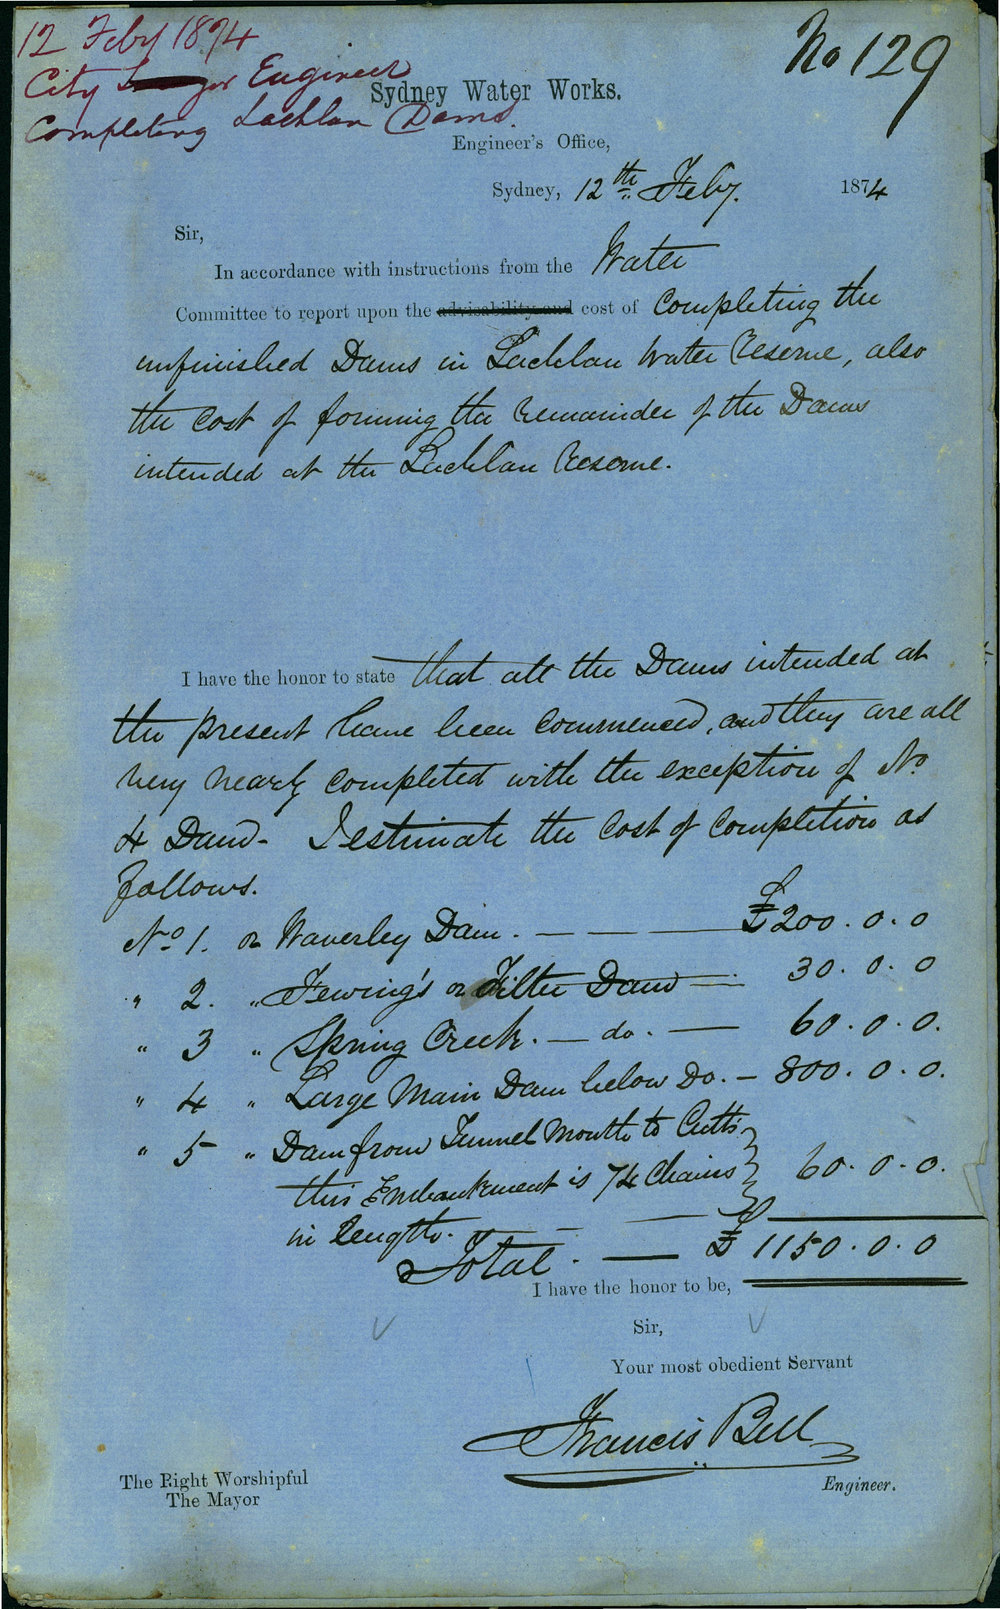 12 Feby 1874
City Engineer
Completing Lachlan Dams.
No 129
Sydney Water Works.
Engineer's Office,
Sydney, 12th Feby. 1874
Sir,
In accordance with instructions from the Water
Committee to report upon the advisability and cost of Completing the
unfinished Dams in Lachlan Water Reserve, also
the Cost of forming the remainder of the Dams
intended at the Lachlan Reserve.
I have the honor to state that all the Dams intended at
the present have been Commenced, and they are all
very nearly Completed with the exception of No
4 Dam - I estimate the Cost of Completion as
follows.
No 1. or Waverley Dam. — — — £200.0.0
" 2. " Fewing's or Filter Dam — 30.0.0
" 3 " Spring Creek. — do. — 60.0.0.
" 4 " Large Main Dam below Do. — 800.0.0.
" 5 " Dam from Tunnel Mouth to Cutts
this Embankment is 74 Chains 60.0.0.
in length. — —
Total. — £1150.0.0
I have the honor to be,
Sir,
Your most obedient Servant
Francis Bell
Engineer.
The Right Worshipful
The Mayor